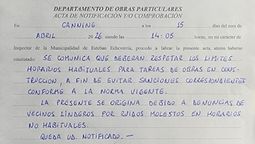 DEPARTAMENTO DE OBRAS PARTICULARES
ACTA DE NOTIFICACIÓN Y/O COMPROBACIÓN
En CANNING a los 15 días del mes
de ABRIL 26 siendo las 14:05 horas, el que suscribe
Inspector de la Municipalidad de Esteban Echeverría, procede a labrar la presente acta,
constatado: SE COMUNICA QUE DEBERAN RESPETAR LOS LIMITES
HORARIOS HABITUALES. PARA TAREAS DE OBRAS EN CONS-
TRUCCION, A FIN DE EVITAR SANCIONES CORRESPONDIENTES
CONFORME A LA NORMA VIGENTE.
LA PRESENTE SE ORIGINA DEBIDO A DENUNCIAS DE
VECINOS LINDEROS POR RUIDOS MOLESTOS EN HORARIOS
NO HABITUALES.
QUEDA UD. NOTIFICADO.—